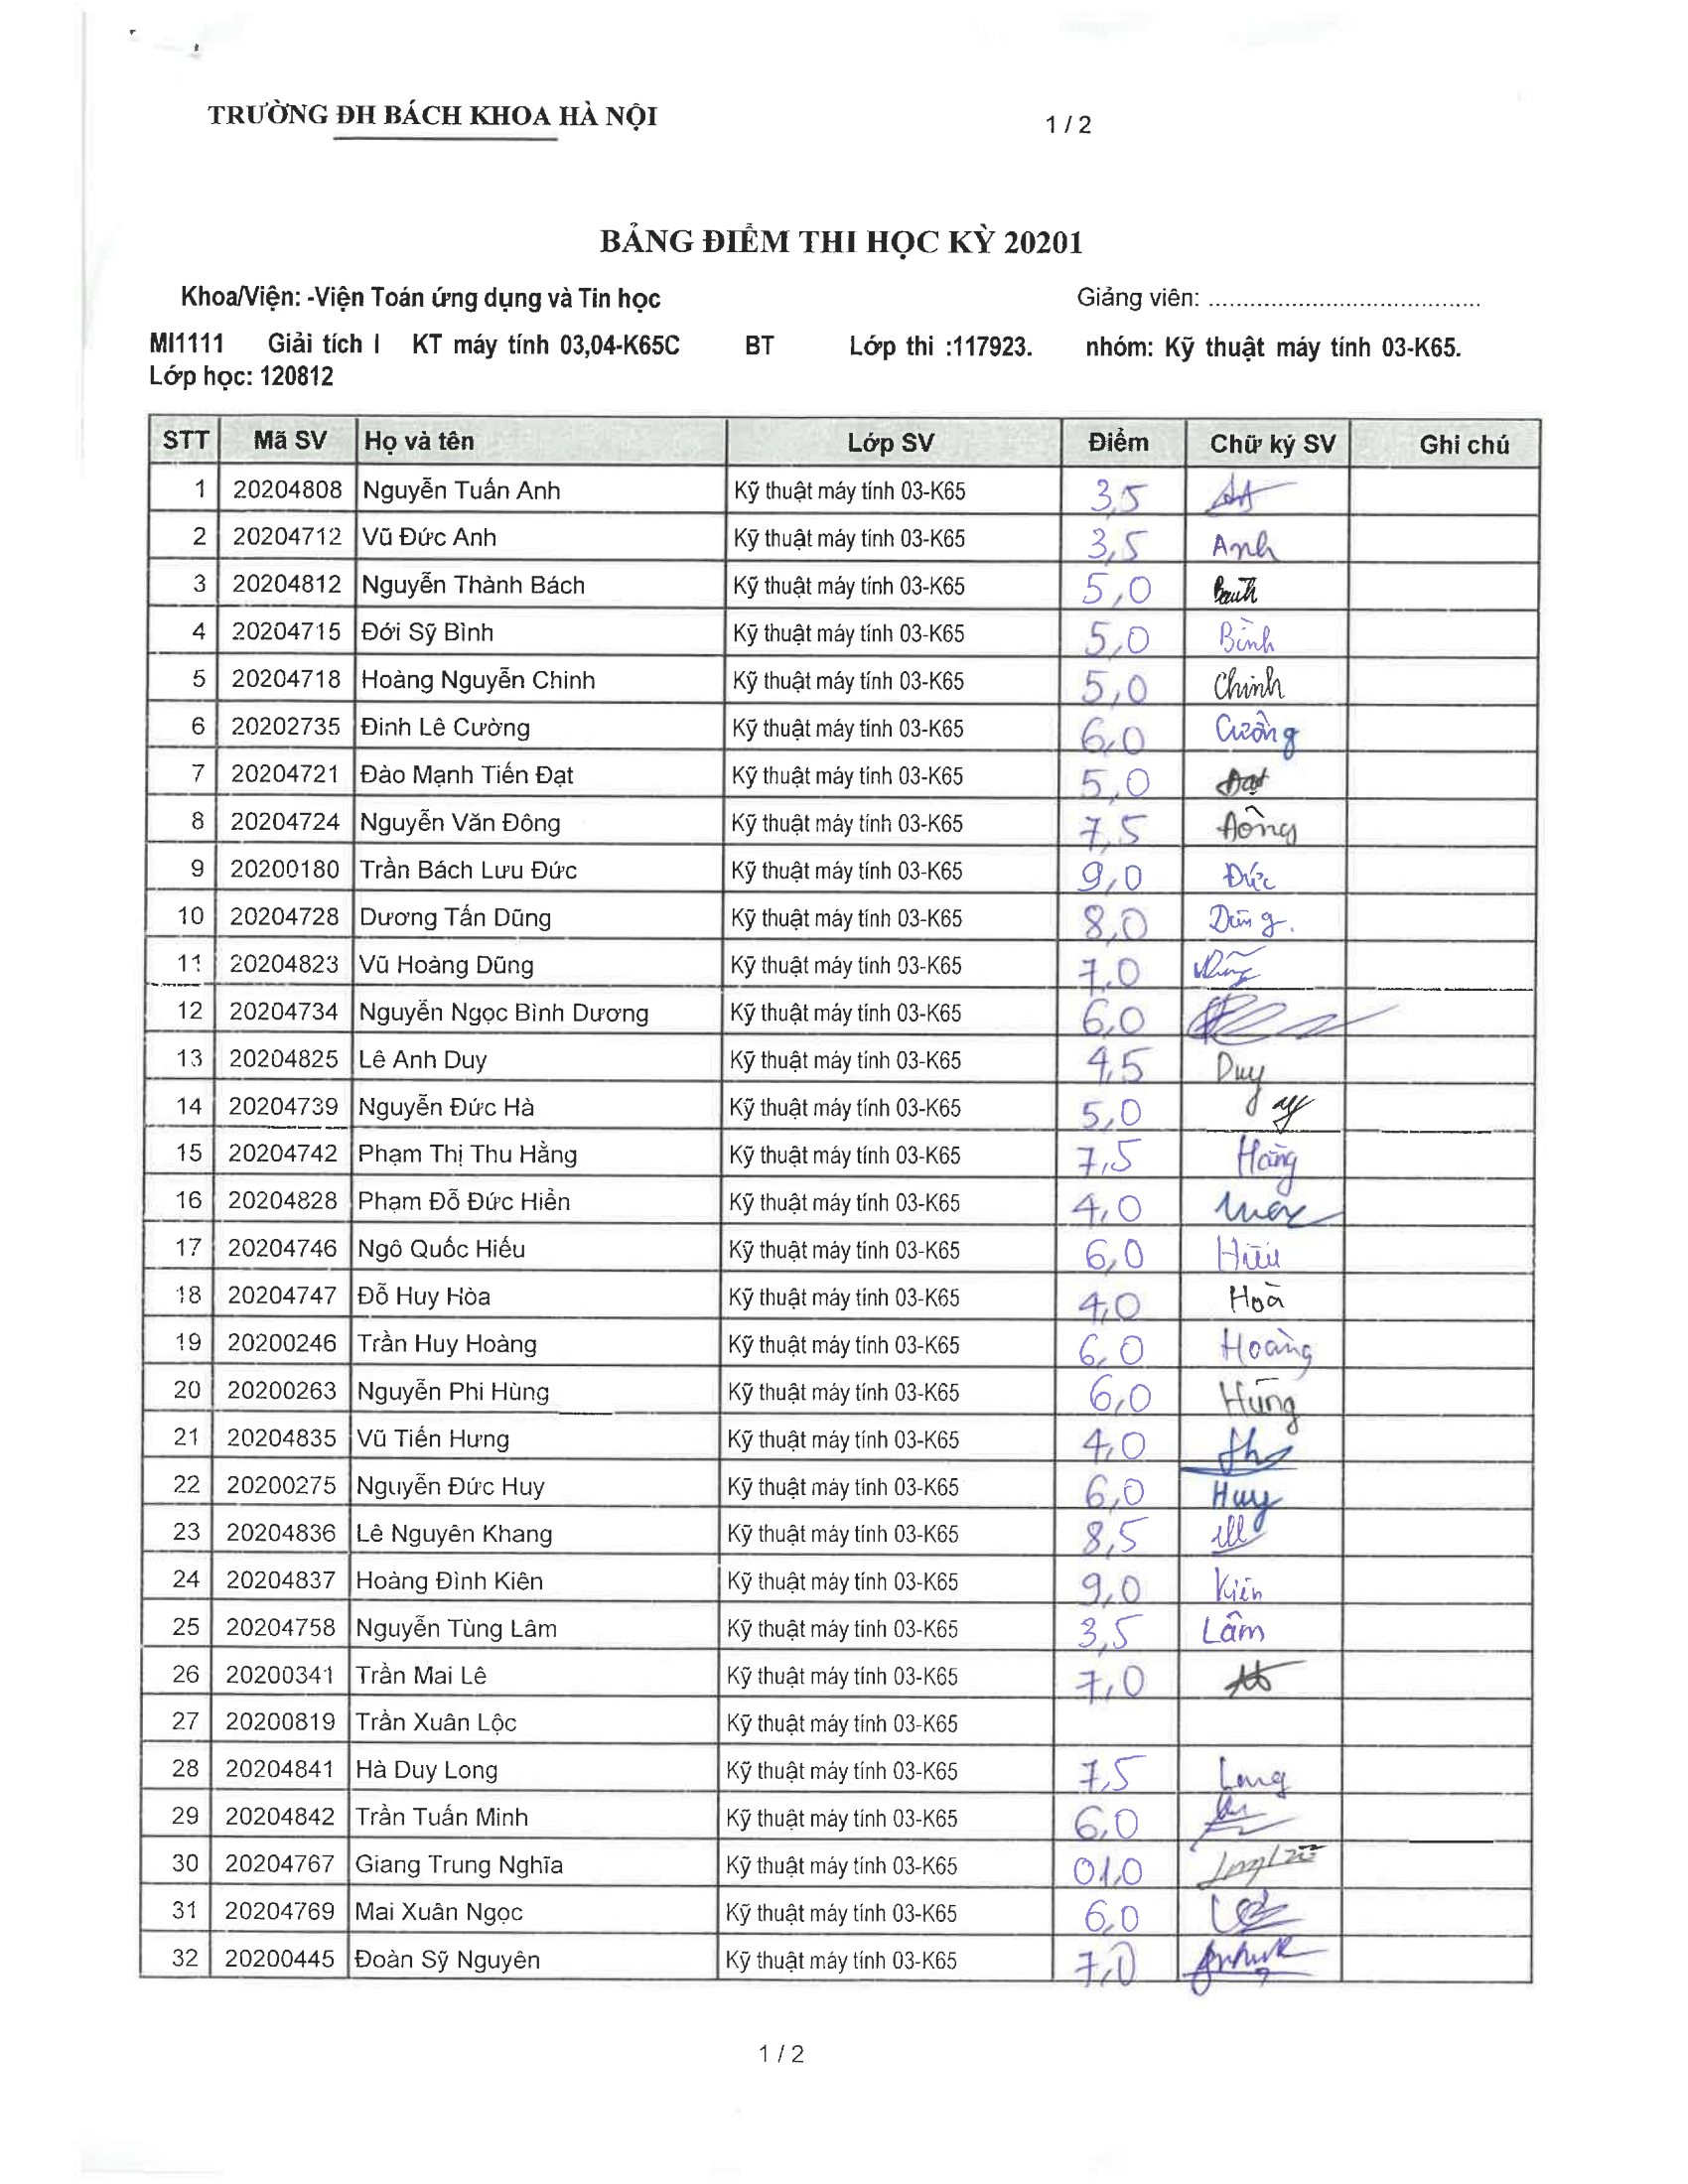 TRƯỜNG ĐH BÁCH KHOA HÀ NỘI
1 / 2
BẢNG ĐIỂM THI HỌC KỲ 20201
Khoa/Viện: -Viện Toán ứng dụng và Tin học Giảng viên: .......................................
MI1111 Giải tích I KT máy tính 03,04-K65C BT Lớp thi :117923. nhóm: Kỹ thuật máy tính 03-K65.
Lớp học: 120812
STT Mã SV Họ và tên Lớp SV Điểm Chữ ký SV Ghi chú
1 20204808 Nguyễn Tuấn Anh Kỹ thuật máy tính 03-K65 3,5
2 20204712 Vũ Đức Anh Kỹ thuật máy tính 03-K65 3,5 Anh
3 20204812 Nguyễn Thành Bách Kỹ thuật máy tính 03-K65 5,0
4 20204715 Đới Sỹ Bình Kỹ thuật máy tính 03-K65 5,0 Bình
5 20204718 Hoàng Nguyễn Chinh Kỹ thuật máy tính 03-K65 5,0 Chinh
6 20202735 Đinh Lê Cường Kỹ thuật máy tính 03-K65 6,0 Cường
7 20204721 Đào Mạnh Tiến Đạt Kỹ thuật máy tính 03-K65 5,0 Đạt
8 20204724 Nguyễn Văn Đông Kỹ thuật máy tính 03-K65 7,5 Đông
9 20200180 Trần Bách Lưu Đức Kỹ thuật máy tính 03-K65 9,0 Đức
10 20204728 Dương Tấn Dũng Kỹ thuật máy tính 03-K65 8,0 Dũng.
11 20204823 Vũ Hoàng Dũng Kỹ thuật máy tính 03-K65 7,0
12 20204734 Nguyễn Ngọc Bình Dương Kỹ thuật máy tính 03-K65 6,0
13 20204825 Lê Anh Duy Kỹ thuật máy tính 03-K65 4,5 Duy
14 20204739 Nguyễn Đức Hà Kỹ thuật máy tính 03-K65 5,0
15 20204742 Phạm Thị Thu Hằng Kỹ thuật máy tính 03-K65 7,5 Hằng
16 20204828 Phạm Đỗ Đức Hiển Kỹ thuật máy tính 03-K65 4,0
17 20204746 Ngô Quốc Hiếu Kỹ thuật máy tính 03-K65 6,0 Hiếu
18 20204747 Đỗ Huy Hòa Kỹ thuật máy tính 03-K65 4,0 Hoà
19 20200246 Trần Huy Hoàng Kỹ thuật máy tính 03-K65 6,0 Hoàng
20 20200263 Nguyễn Phi Hùng Kỹ thuật máy tính 03-K65 6,0 Hùng
21 20204835 Vũ Tiến Hưng Kỹ thuật máy tính 03-K65 4,0
22 20200275 Nguyễn Đức Huy Kỹ thuật máy tính 03-K65 6,0 Huy
23 20204836 Lê Nguyên Khang Kỹ thuật máy tính 03-K65 8,5
24 20204837 Hoàng Đình Kiên Kỹ thuật máy tính 03-K65 9,0 Kiên
25 20204758 Nguyễn Tùng Lâm Kỹ thuật máy tính 03-K65 3,5 Lâm
26 20200341 Trần Mai Lê Kỹ thuật máy tính 03-K65 7,0
27 20200819 Trần Xuân Lộc Kỹ thuật máy tính 03-K65
28 20204841 Hà Duy Long Kỹ thuật máy tính 03-K65 7,5 Long
29 20204842 Trần Tuấn Minh Kỹ thuật máy tính 03-K65 6,0
30 20204767 Giang Trung Nghĩa Kỹ thuật máy tính 03-K65 01,0
31 20204769 Mai Xuân Ngọc Kỹ thuật máy tính 03-K65 6,0
32 20200445 Đoàn Sỹ Nguyên Kỹ thuật máy tính 03-K65 7,0
1 / 2